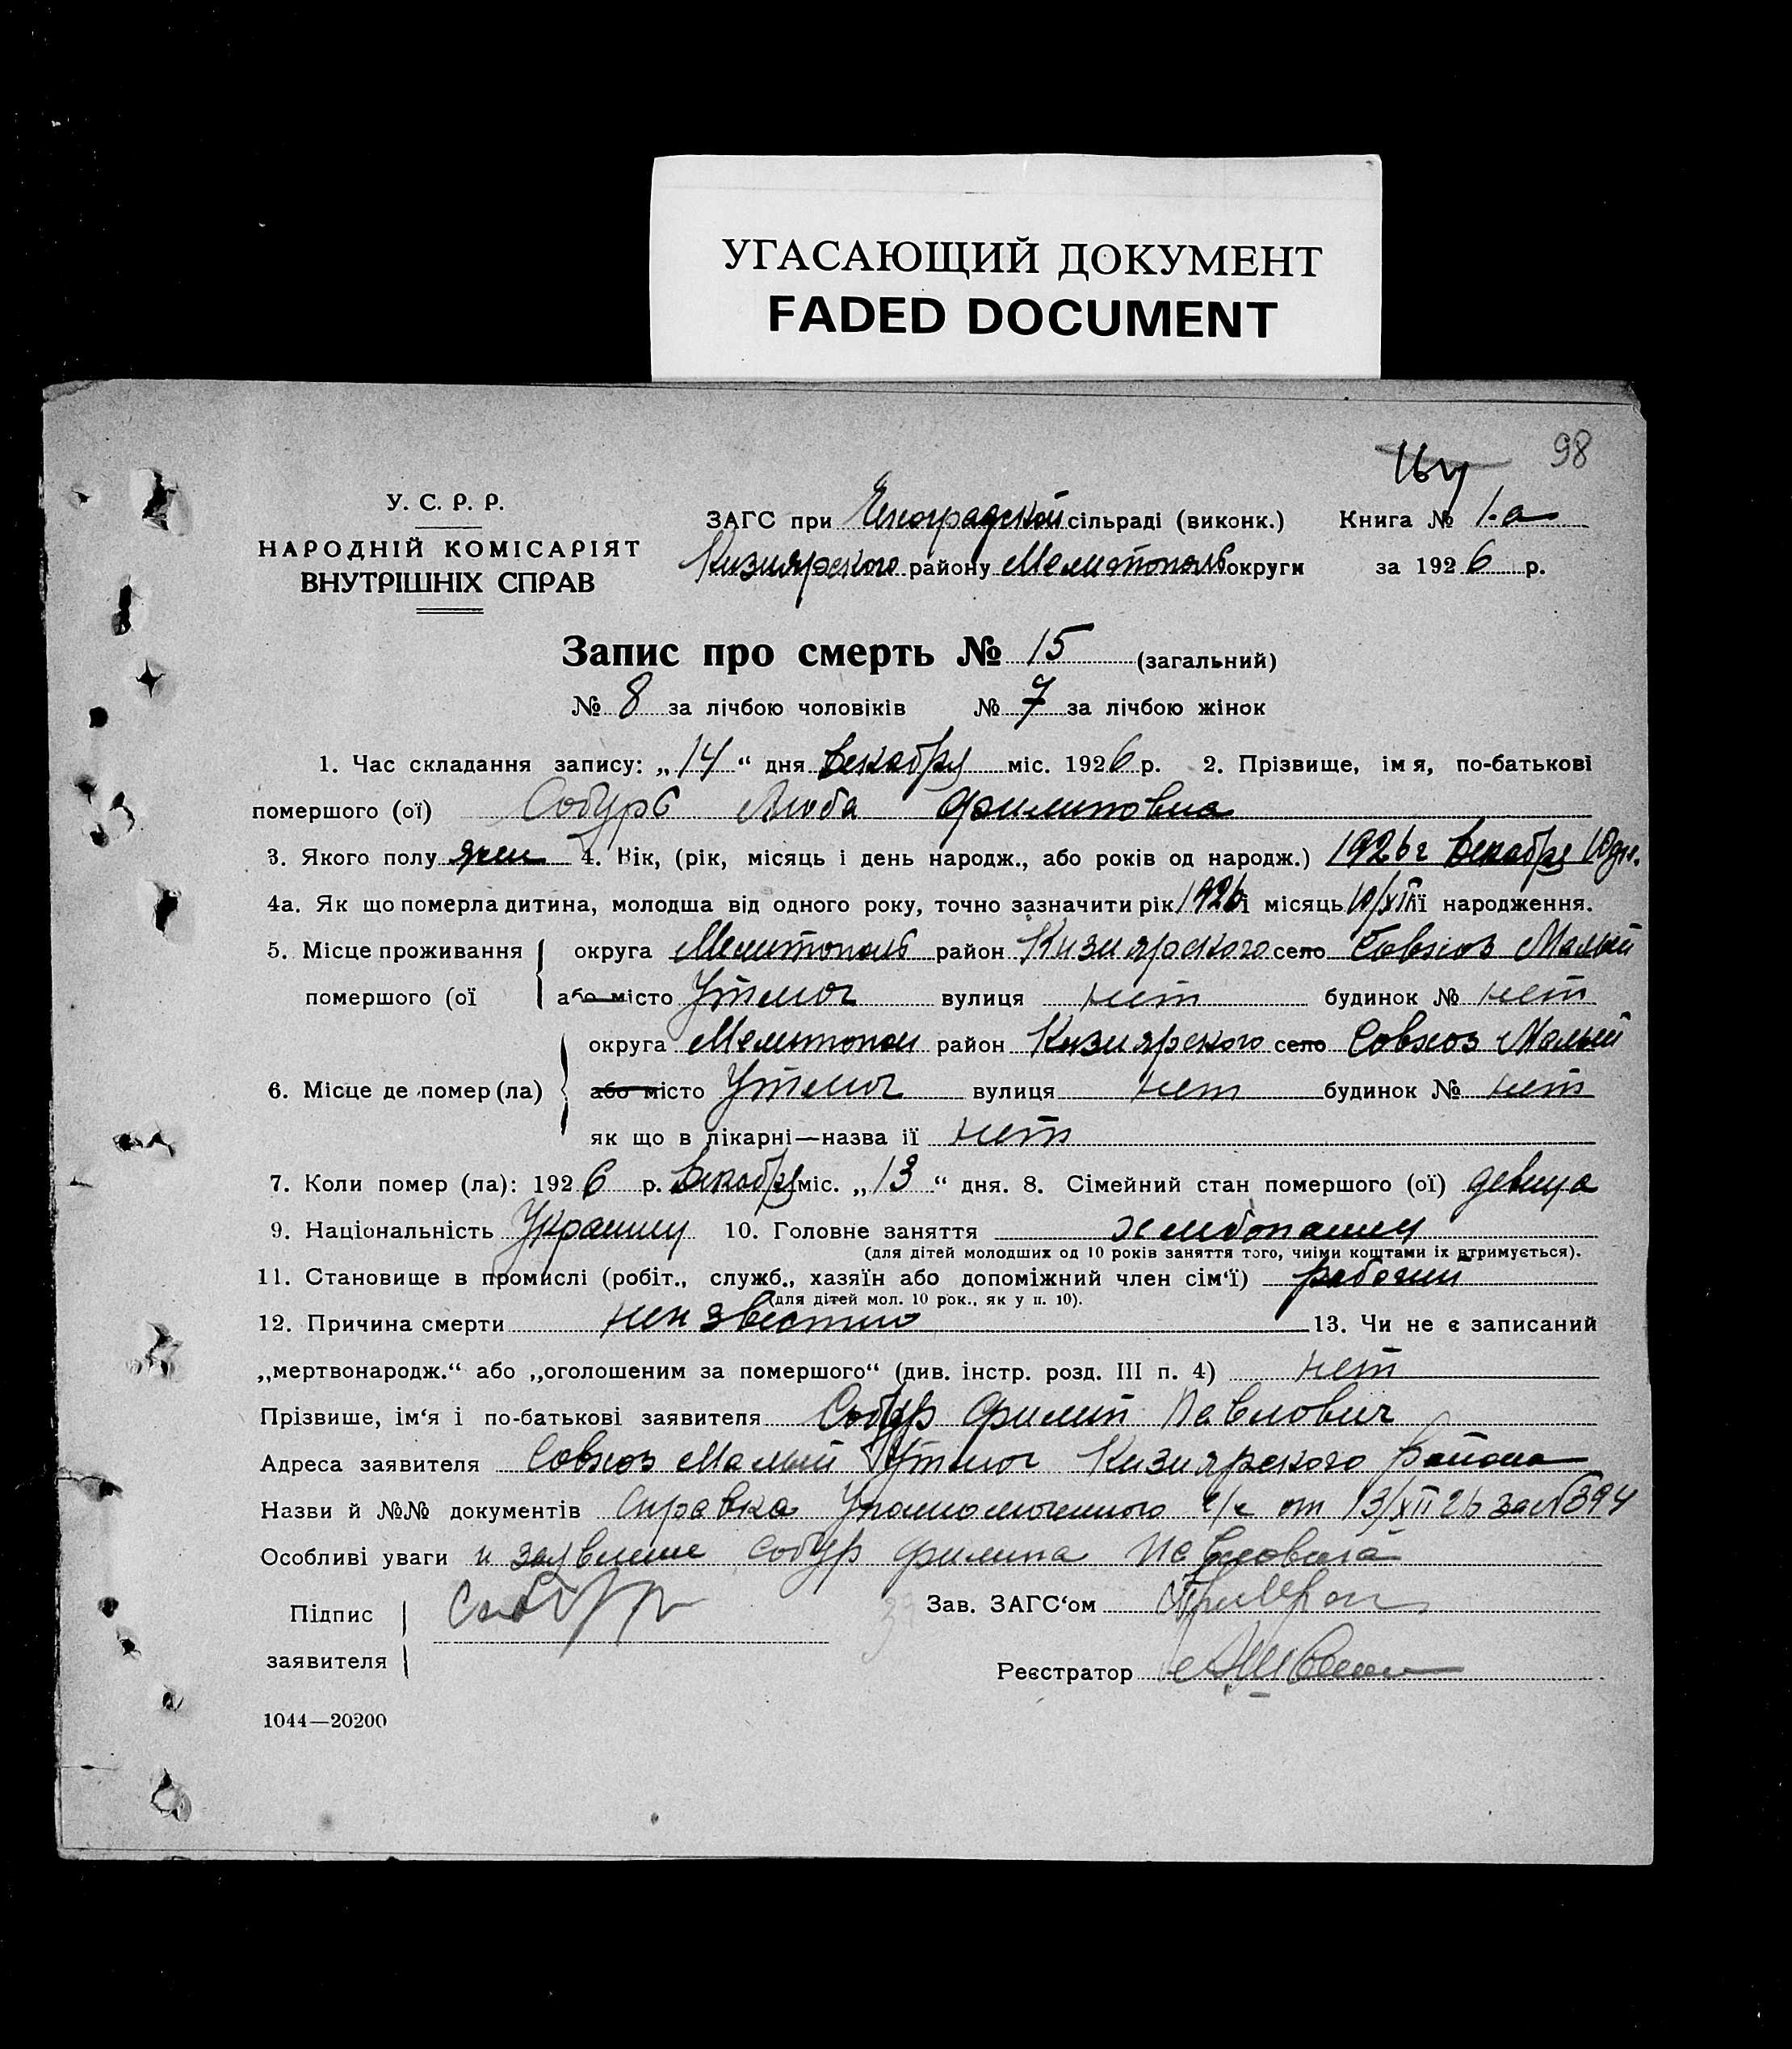 УГАСАЮЩИЙ ДОКУМЕНТ
FADED DOCUMENT
98
У. С. Р. Р.
НАРОДНІЙ КОМІСАРІЯТ
ВНУТРІШНІХ СПРАВ
ЗАГС при сільраді (виконк.) Книга № 1-а
Кизиярского району Мелитополь округи за 1926 р.
Запис про смерть № 15 (загальний)
№ 8 за лічбою чоловіків № 7 за лічбою жінок
1. Час складання запису: „14“ дня Декабря міс. 1926 р. 2. Прізвище, імя, по-батькові
помершого (ої) Собурь Люба Филиповна
3. Якого полу жен 4. Вік, (рік, місяць і день народж., або років од народж.) 1926 г Декабря 10 дн.
4а. Як що померла дитина, молодша від одного року, точно зазначити рік 1926 і місяць 10/XII її народження.
5. Місце проживання округа Мелитополь район Кизиярского село Совхоз Малый
помершого (ої або місто Утлюг вулиця нет будинок № нет
округа Мелитопол район Кизиярского село Совхоз Малый
6. Місце де помер (ла) або місто Утлюг вулиця нет будинок № нет
як що в лікарні—назва її нет
7. Коли помер (ла): 1926 р. Декабря міс. „13“ дня. 8. Сімейний стан помершого (ої) девица
9. Національність Украинц 10. Головне заняття хлебопашец
(для дітей молодших од 10 років заняття того, чиїми коштами їх втримується).
11. Становище в промислі (робіт., служб., хазяїн або допоміжний член сім‘ї) рабочий
(для дітей мол. 10 рок., як у п. 10).
12. Причина смерти неизвестно 13. Чи не є записаний
„мертвонародж.“ або „оголошеним за помершого“ (див. інстр. розд. III п. 4) нет
Прізвише, ім‘я і по-батькові заявителя Собур Филип Павлович
Адреса заявителя Совхоз Малый Утлюг Кизиярского Района
Назви й №№ документів Справка Уполномоченного с/с от 13/XII 26 за № 394
Особливі уваги и заявление Собур Филипа Павловича
Підпис Собур Зав. ЗАГС‘ом
заявителя
Реєстратор
1044—20200